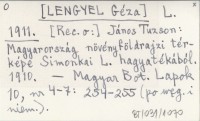 O [LENGYEL Géza] L.
1911. [Rec. o:] János Tuzson:
Magyarország növényföldrajzi tér-
képe Simonkai L. hagyatékából.
1910. — Magyar Bot. Lapok
10, nr 4-7: 254-255 (po węg. i
niem.).
BT/039/1070